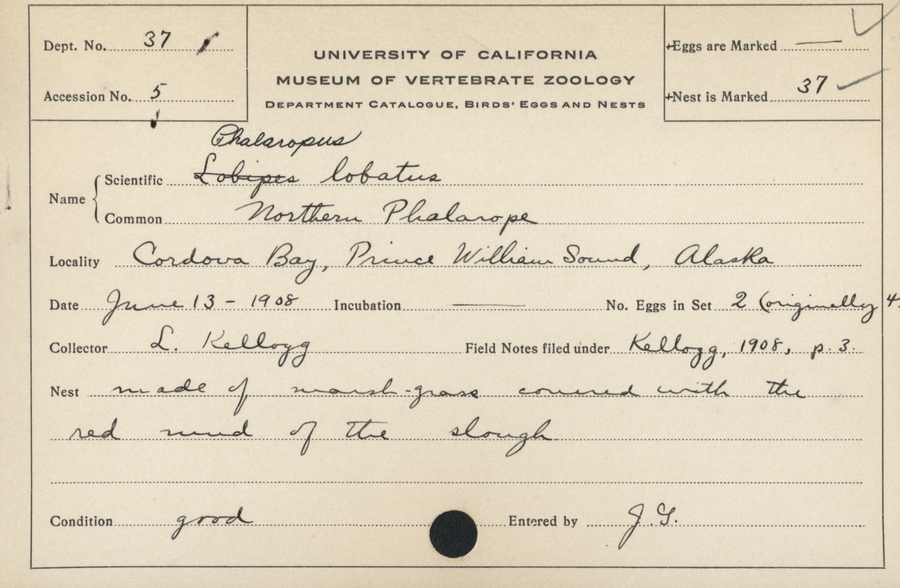 Dept. No. 37
UNIVERSITY OF CALIFORNIA
MUSEUM OF VERTEBRATE ZOOLOGY
DEPARTMENT CATALOGUE, BIRDS' EGGS AND NESTS
Eggs are Marked —
Accession No. 5
Nest is Marked 37
Phalaropus
Name Scientific Lobipes lobatus
Common Northern Phalarope
Locality Cordova Bay, Prince William Sound, Alaska
Date June 13 - 1908 Incubation — No. Eggs in Set 2 (originally 4
Collector L. Kellogg Field Notes filed under Kellogg, 1908, p. 3.
Nest made of marsh-grass covered with the
red mud of the slough
Condition good Entered by J.G.